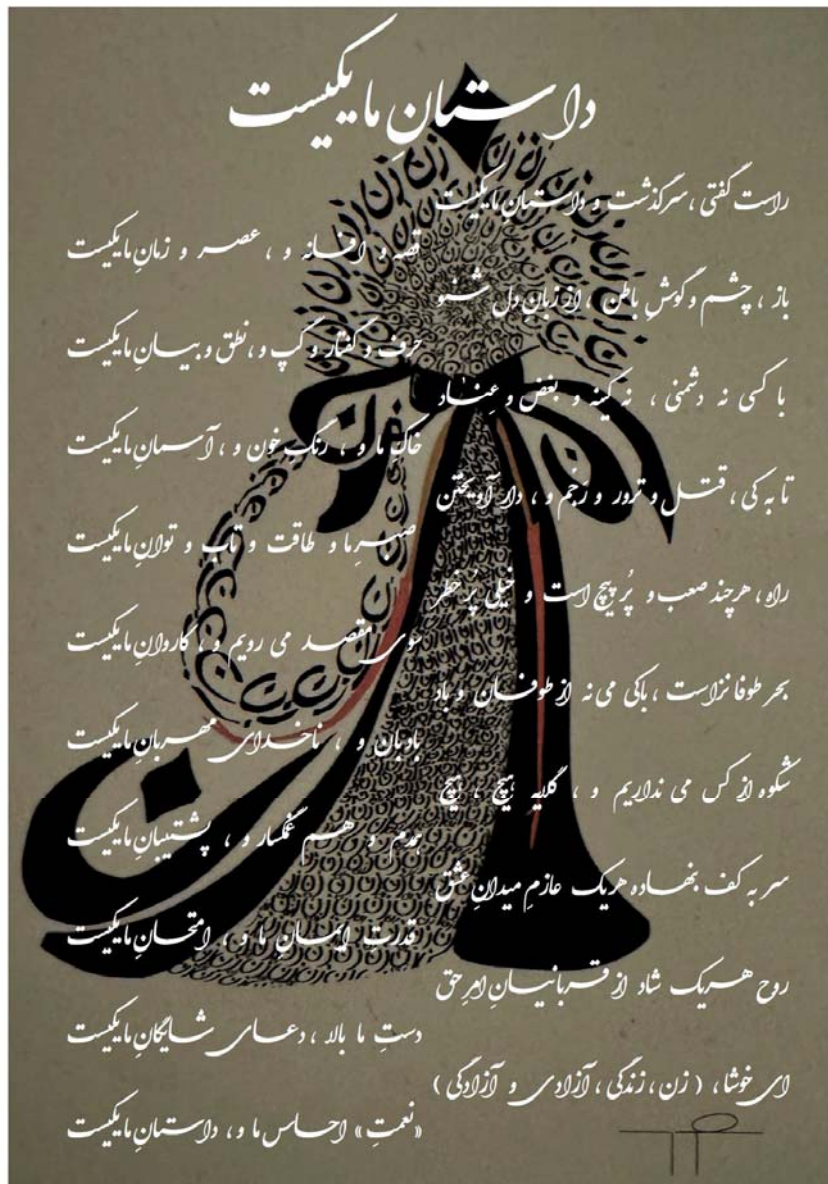 داستانِ ما یکیست
راست گفتی ، سرگذشت و داستانِ ما یکیست
قصه و افسانه و ، عصر و زمانِ ما یکیست
باز ، چشم و گوشِ باطن ، از زبانِ دل شنو
حرف و گفتار و گپ و ، نطق و بیانِ ما یکیست
با کسی نه دشمنی ، نه کینه و بغض و عِناد
خاک ما و ، رنگِ خون و ، آسمانِ ما یکیست
تا به کی ، قتل و ترور و رَجم و ، دار آویختن
صبرِ ما و طاقت و تاب و توانِ ما یکیست
راه ، هرچند صعب و پُر پیچ است و خیلی پُر خطر
سوی مقصد می رویم و ، کاروانِ ما یکیست
بحر طوفانزاست ، باکی می نه از طوفان و باد
بادبان و ، ناخدای مهربانِ ما یکیست
شکوه از کس می نداریم و ، گلایه هیچ ، هیچ
همدم و هم غمگسار و ، پشتیبانِ ما یکیست
سر به کف بنهاده هریک عازمِ میدانِ عشق
قدرتِ ایمانِ ما و ، امتحانِ ما یکیست
روح هریک شاد از قربانیانِ امرِ حق
دستِ ما بالا ، دعای شایگانِ ما یکیست
ای خوشا ، ( زن ، زندگی ، آزادی و آزادگی )
«نعمتِ» احساس ما و ، داستانِ ما یکیست
زن زن زن زن زن زن